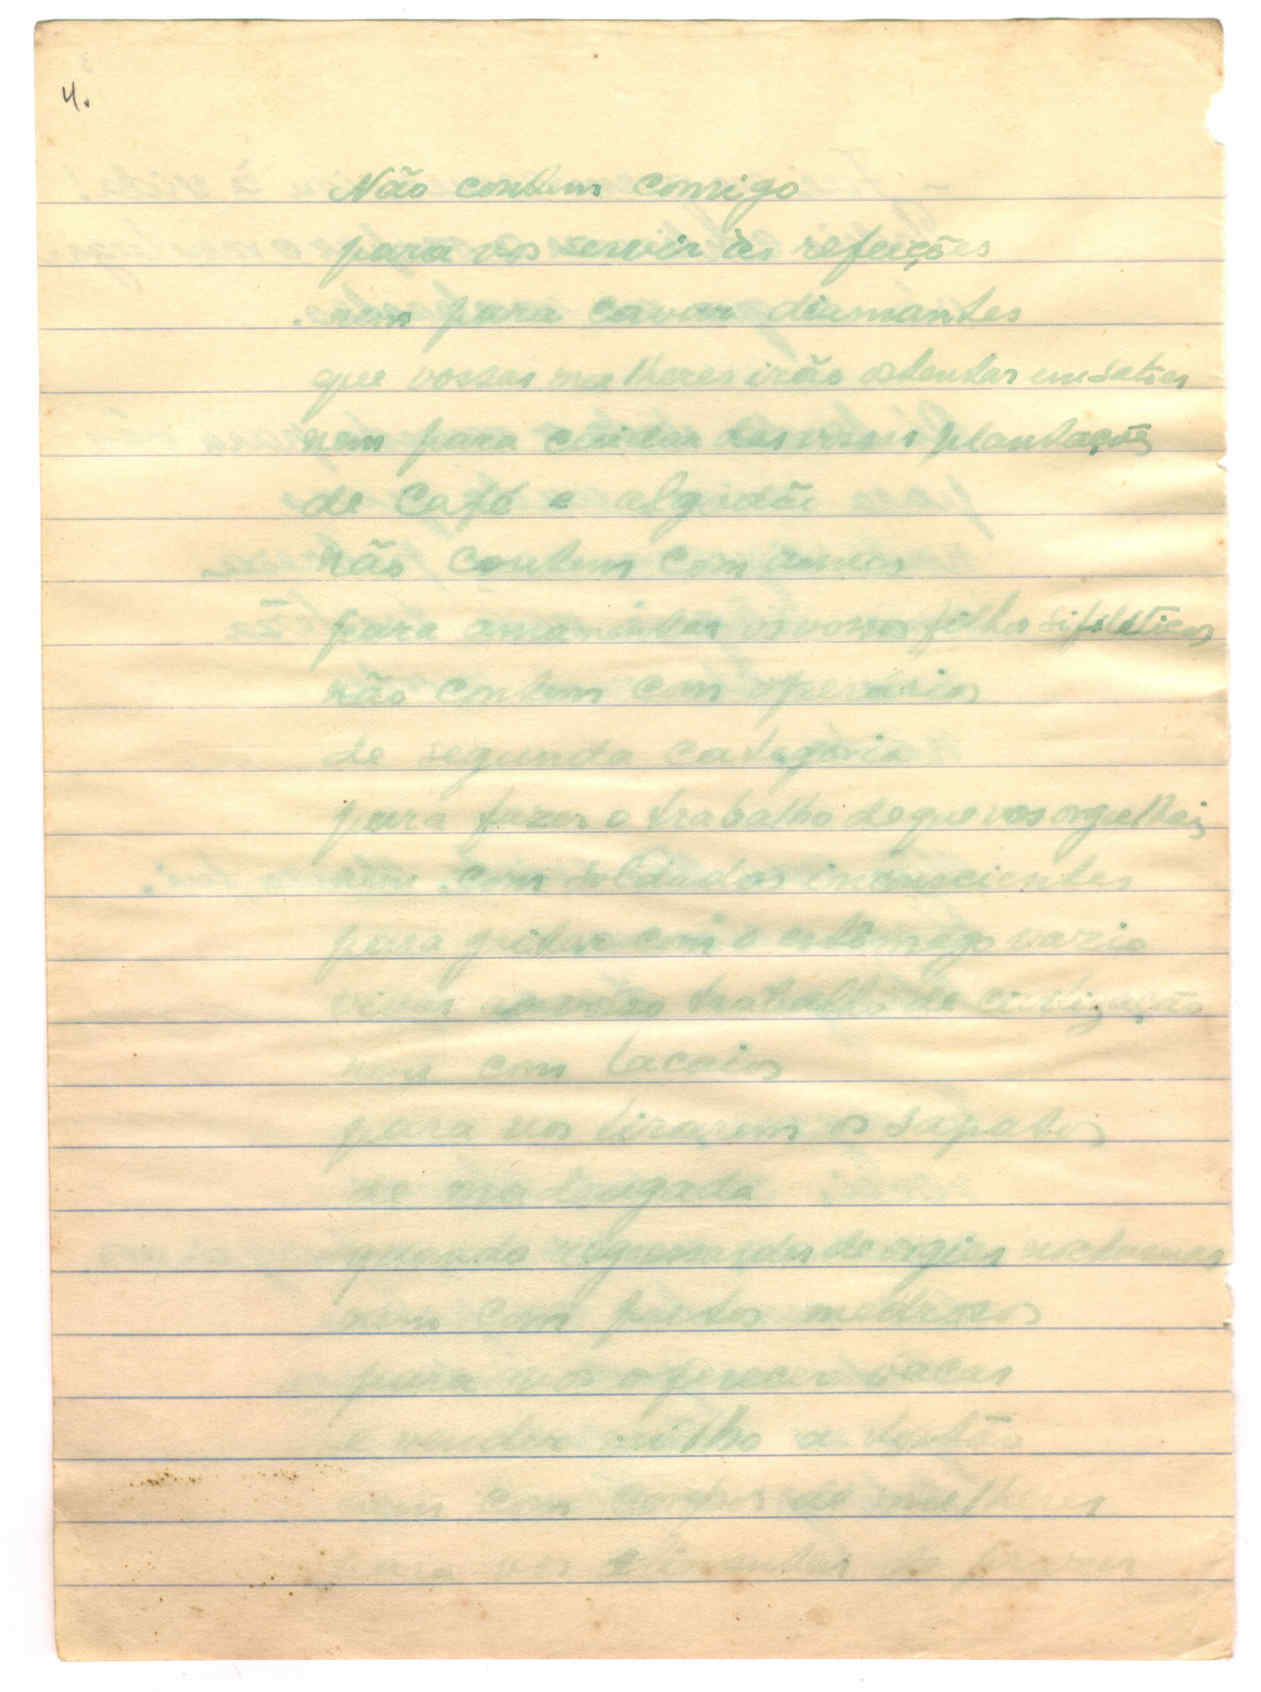 4.
Não contem comigo
para vos servir às refeições
nem para cavar diamantes
que vossas mulheres irão ostentar em salões
nem para cuidar das vossas plantações
de café e algodão
não contem com amas
para amamentar os vossos filhos sifilíticos
não contem com operários
de segunda categoria
para fazer o trabalho de que vos orgulhais
nem com soldados inconscientes
para gritar com o estômago vazio
vivas ao vosso trabalho de civilização
nem com lacaios
para vos tirarem os sapatos
de madrugada
quando regressardes de orgias nocturnas
nem com pretos medrosos
para vos oferecer vacas
e vender milho a tostão
nem com corpos de mulheres
para vos alimentar de prazeres